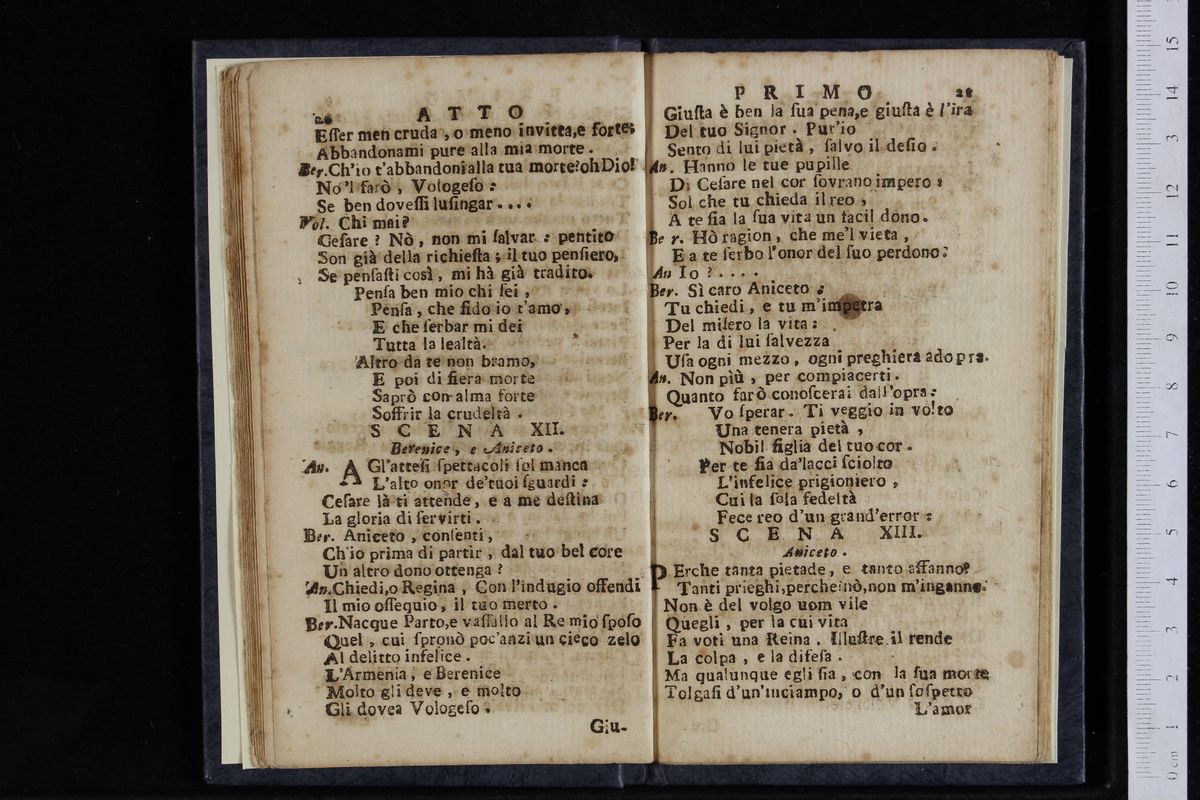 26 ATTO
Eſſer men cruda , o meno invitta,e forte;
Abbandonami pure alla mia morte .
Ber.Ch'io t'abbandoni alla tua morte?oh Dio!
No'l farò , Vologeſo :
Se ben doveſſi luſingar . . . .
Vol. Chi mai?
Ceſare ? Nò , non mi ſalvar : pentito
Son già della richieſta ; il tuo penſiero,
Se penſaſti così , mi hà già tradito.
Penſa ben mio chi ſei ,
Penſa , che fido io t'amo ,
E che ſerbar mi dei
Tutta la lealtà.
Altro da te non bramo,
E poi di fiera morte
Saprò con alma forte
Soffrir la crudeltà .
SCENA XII.
Berenice , e Aniceto .
An. AGl'atteſi ſpettacoli ſol manca
L'alto onor de'tuoi ſguardi :
Ceſare là ti attende , e a me deſtina
La gloria di ſervirti .
Ber. Aniceto , conſenti ,
Ch'io prima di partir , dal tuo bel core
Un altro dono ottenga ?
An.Chiedi,o Regina , Con l'indugio offendi
Il mio oſſequio , il tuo merto .
Ber.Nacque Parto,e vaſſallo al Re mio ſpoſo
Quel , cui ſpronò poc'anzi un cieco zelo
Al delitto infelice .
L'Armenia , e Berenice
Molto gli deve , e molto
Gli dovea Vologeſo .
Giu-
PRIMO
Giuſta è ben la ſua pena,e giuſta è l'ira
Del tuo Signor . Pur'io
Sento di lui pietà , ſalvo il deſio .
An. Hanno le tue pupille
Di Ceſare nel cor ſovrano impero :
Sol che tu chieda il reo ,
A te ſia la ſua vita un facil dono .
Be r. Hò ragion , che me'l vieta ,
E a te ſerbo l'onor del ſuo perdono.
An Io ? . . . .
Ber. Sì caro Aniceto :
Tu chiedi , e tu m'impetra
Del miſero la vita :
Per la di lui ſalvezza
Uſa ogni mezzo , ogni preghiera adopra.
An. Non più , per compiacerti .
Quanto farò conoſcerai dall'opra :
Ber. Vo ſperar . Ti veggio in volto
Una tenera pietà ,
Nobil figlia del tuo cor .
Per te ſia da'lacci ſciolto
L'infelice prigioniero ,
Cui la ſola fedeltà
Fece reo d'un grand'error :
SCENA XIII.
Aniceto .
PErche tanta pietade , e tanto affanno?
Tanti prieghi,perche?nò,non m'inganno.
Non è del volgo uom vile
Quegli , per la cui vita
Fa voti una Reina . Illuſtre il rende
La colpa , e la difeſa .
Ma qualunque egli ſia , con la ſua morte
Tolgaſi d'un'inciampo, o d'un ſoſpetto
L'amor